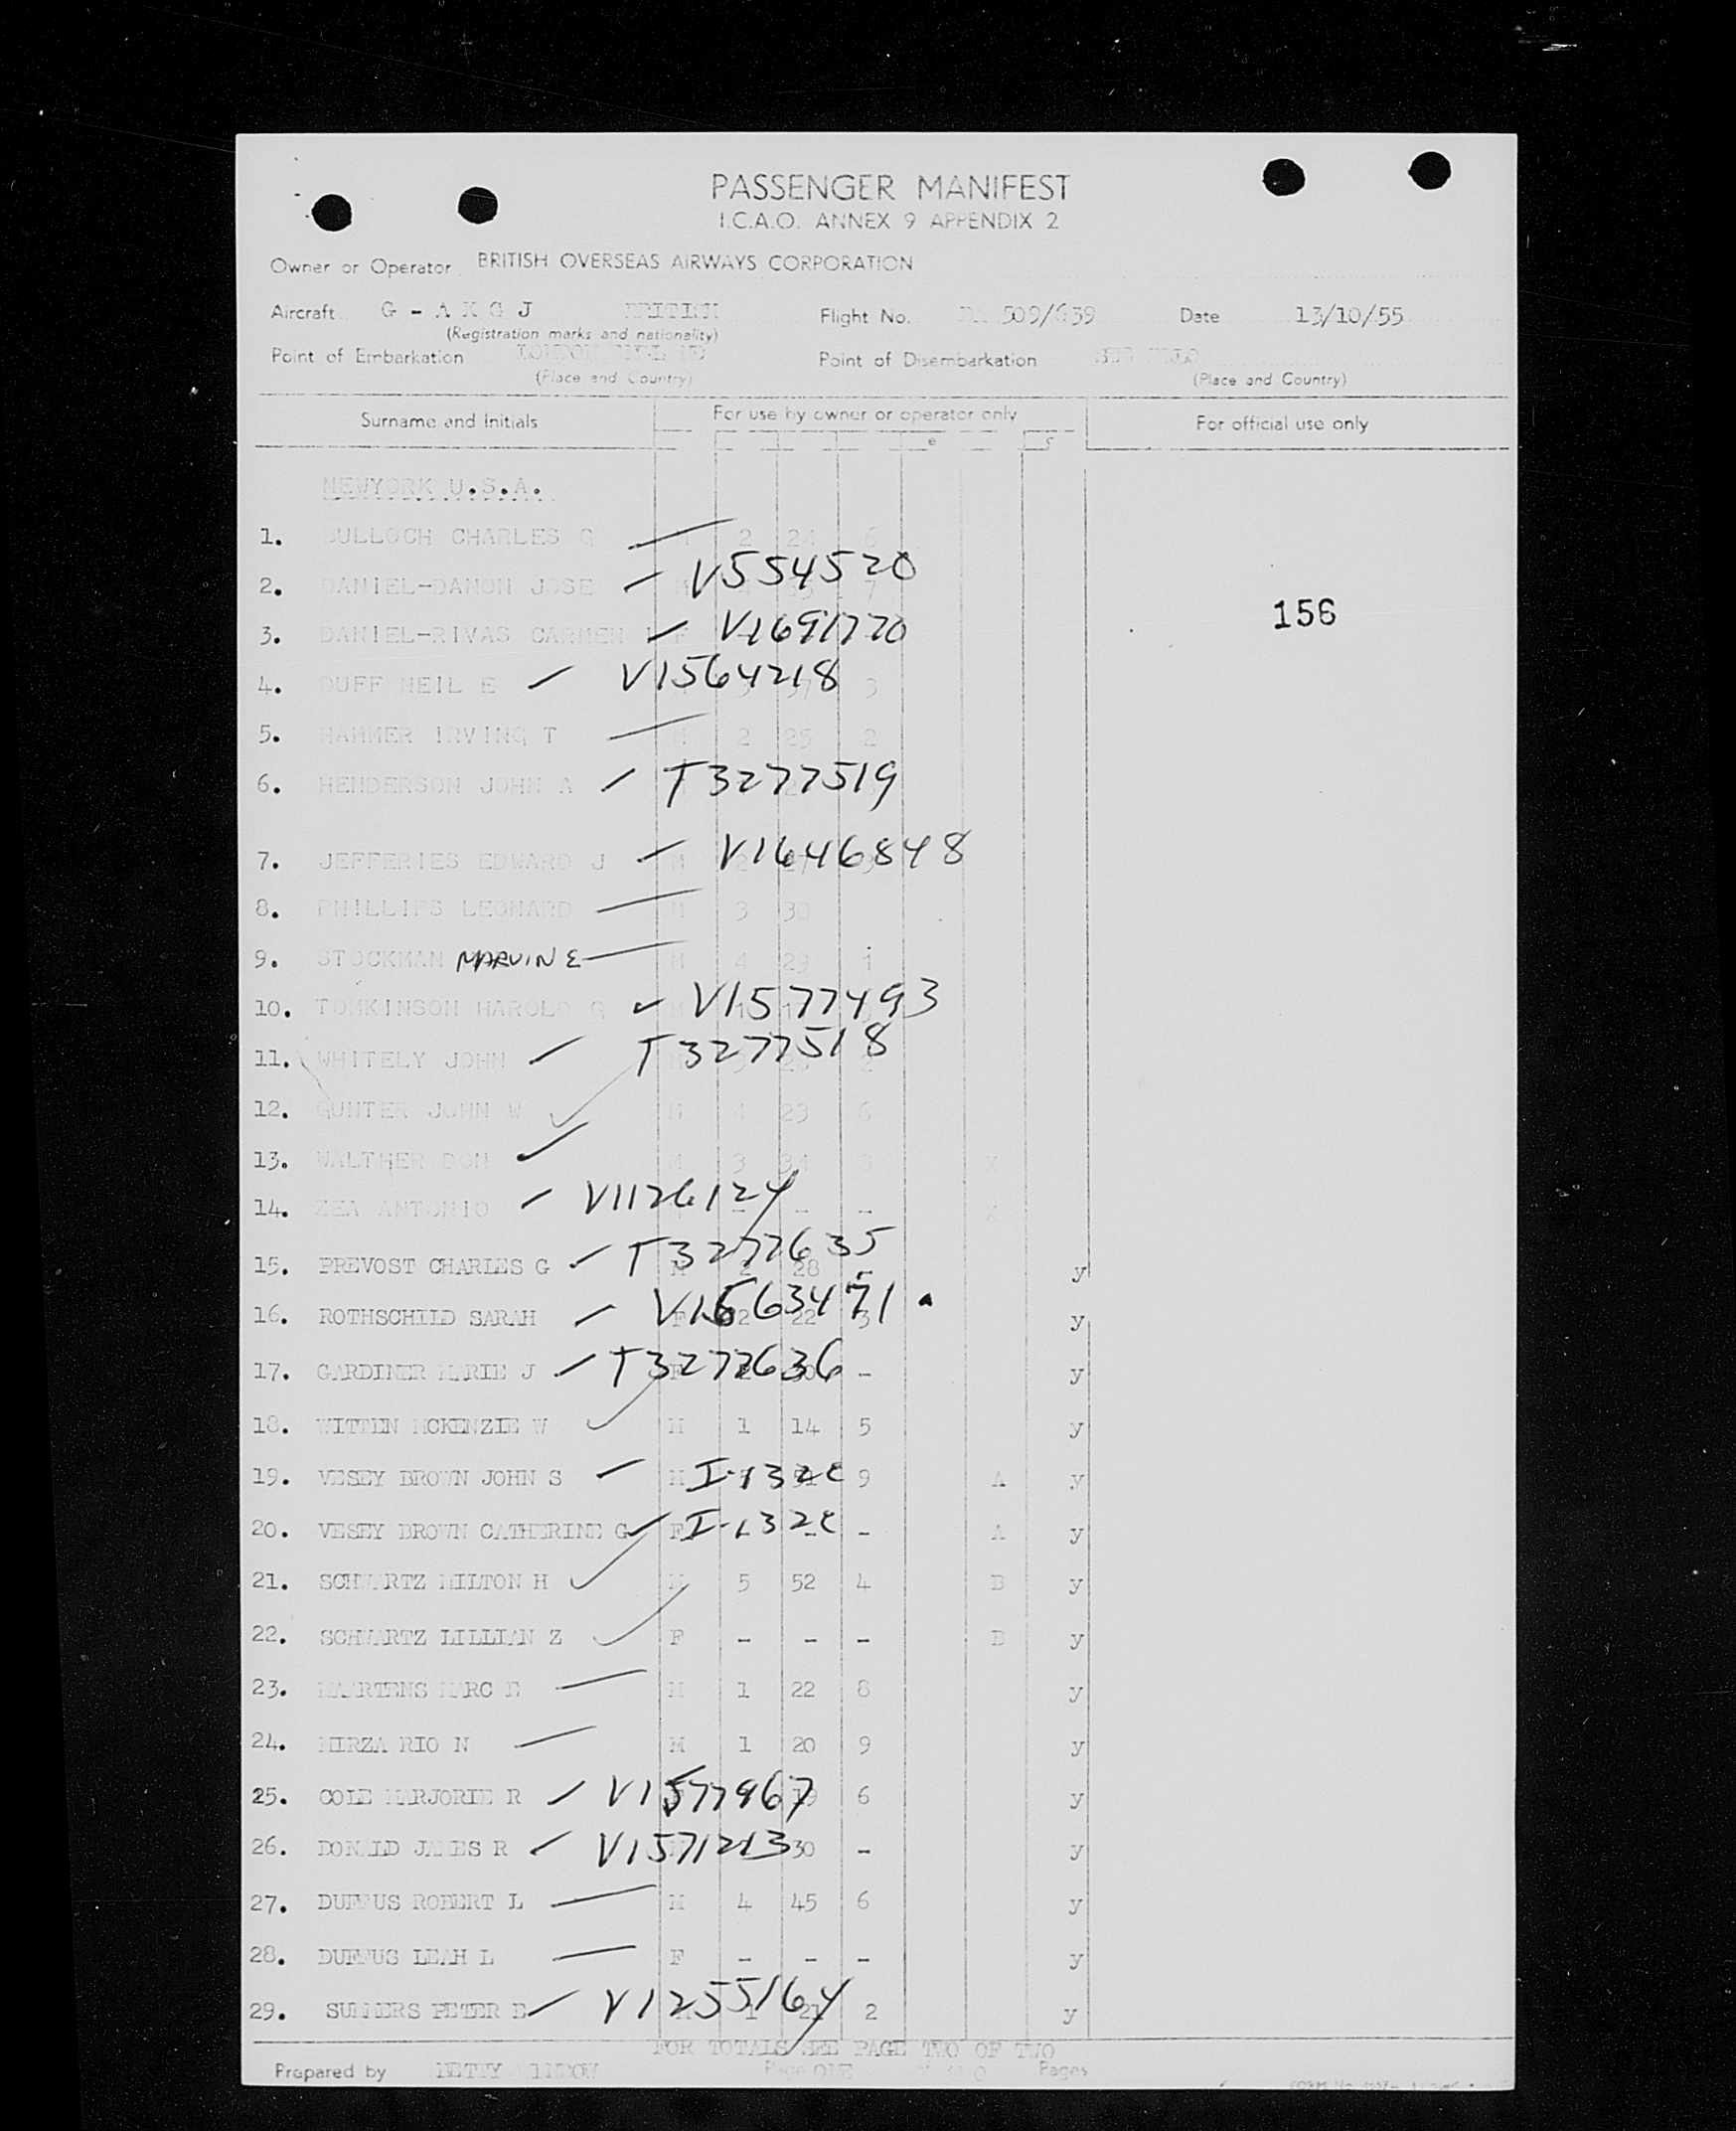 PASSENGER MANIFEST
I.C.A.O. ANNEX 9 APPENDIX 2
Owner or Operator BRITISH OVERSEAS AIRWAYS CORPORATION
Aircraft G - A K G J BRITISH Flight No. 509/639 Date 13/10/55
(Registration marks and nationality)
Point of Embarkation LONDON Point of Disembarkation
(Place and Country) (Place and Country)
Surname and Initials For use by owner or operator only For official use only
e f
NEWYORK U.S.A.
1. BULLOCH CHARLES G 2 24 6
2. DANIEL-DAMON JOSE V554520 7
156
3. DANIEL-RIVAS CARMEN F V1691770
4. DUFF NEIL E V1564218 3
5. HAMMER IRVING T M 2 25 2
6. HENDERSON JOHN A T3277519
7. JEFFERIES EDWARD J M V1646848
8. PHILLIPS LEONARD M 3 30
9. STOCKMAN MARVIN E M 4 29 1
10. TOMKINSON HAROLD G V1577493
11. WHITELY JOHN T3277518
12. GUNTER JOHN W M 4 23 6
13. WALTHER DON M 3 34 X
14. ZEA ANTONIO V1126124 - - X
15. PREVOST CHARLES G T3277635 M 2 28 y
16. ROTHSCHILD SARAH V1563471 F 2 22 3 y
17. GARDINER MARIE J T3277636 - y
18. WITTEN MCKENZIE W M 1 14 5 y
19. VESEY BROWN JOHN S M I-132c 9 A y
20. VESEY BROWN CATHERINE G F I-132c - A y
21. SCHWARTZ MILTON H M 5 52 4 B y
22. SCHWARTZ LILLIAN Z F - - - B y
23. MAARTENS MARC E M 1 22 8 y
24. MIRZA RIO N M 1 20 9 y
25. COLE MARJORIE R V1577967 19 6 y
26. DONALD JAMES R V1571213 30 - y
27. DUFFUS ROBERT L M 4 45 6 y
28. DUFFUS LEAH L F - - - y
29. SUMMERS PETER E V1255164 M 1 21 2 y
FOR TOTALS SEE PAGE TWO OF TWO
Prepared by BETTY Page ONE of TWO Pages